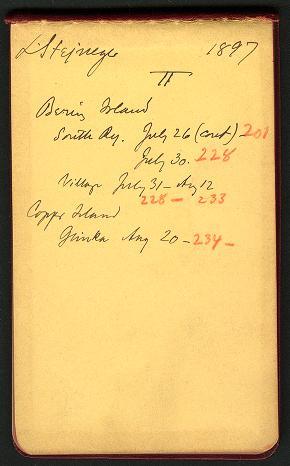 LStejneger 1897
II
Bering Island
South Ry. July 26 (cont) - 201
July 30. 228
Village July 31 - Aug 12
228 - 233
Copper Island
Glinka Aug 20 - 234 -